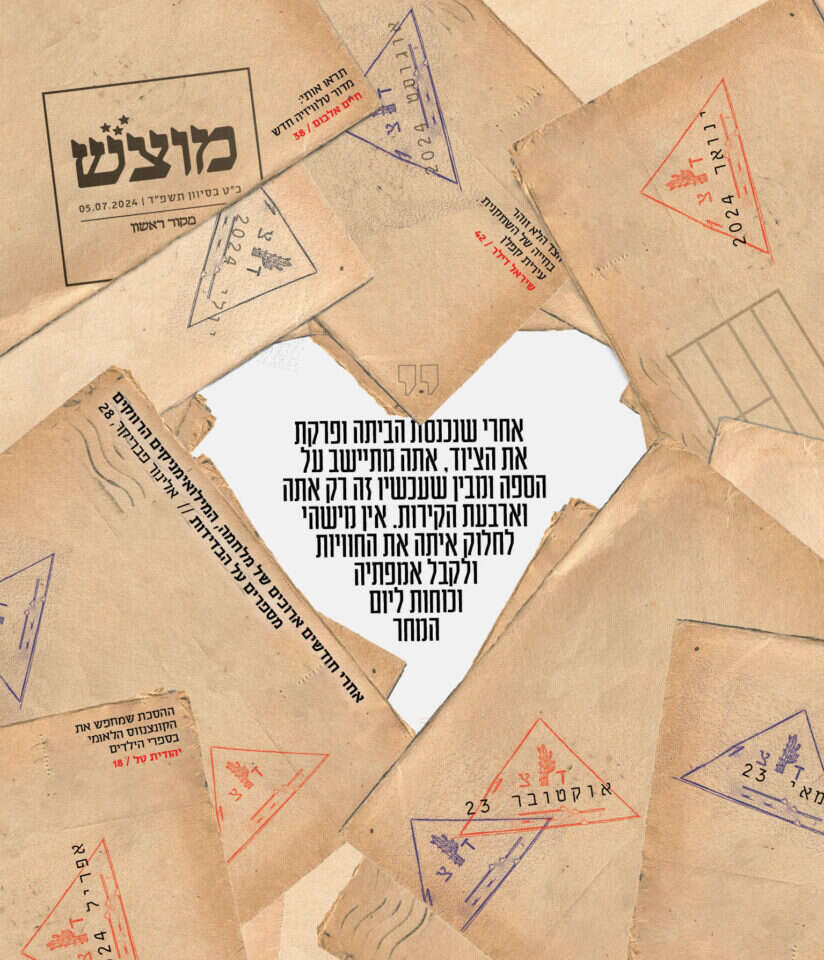 תראו אותי:
מדור טלוויזיה חדש
חיים אלבום / 38
מוצש
כ"ט בסיוון תשפ"ד | 05.07.2024
מקור ראשון
אוגוסט 2024
ד צ
ינואר 2024
ד צ
יולי 2024
ד צ
הלא זוהר
בחייה של השחקנית
עירית קפלן
שיראל דילר / 42
אחרי שנכנסת הביתה ופרקת
את הציוד, אתה מתיישב על
הספה ומבין שעכשיו זה רק אתה
וארבעת הקירות. אין מישהי
לחלוק איתה את החוויות
ולקבל אמפתיה
וכוחות ליום
המחר
אחרי חודשים ארוכים של מלחמה, המילואימניקים הרווקים
מספרים על הבדידות // אלינור פבריקר, 28
ההסכת שמחפש את
הקונצנזוס הלאומי
בספרי הילדים
יהודית טל / 18
ד צ
אוקטובר 23
ד צ
מאי 23
ד צ
ד צ
אפריל 2024
ד צ